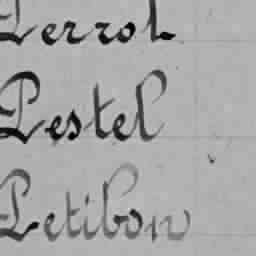 Perrot
Pestel
Petibon